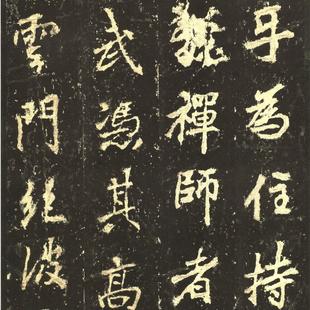 為住持
禪師者
武憑其高
雲門絕波